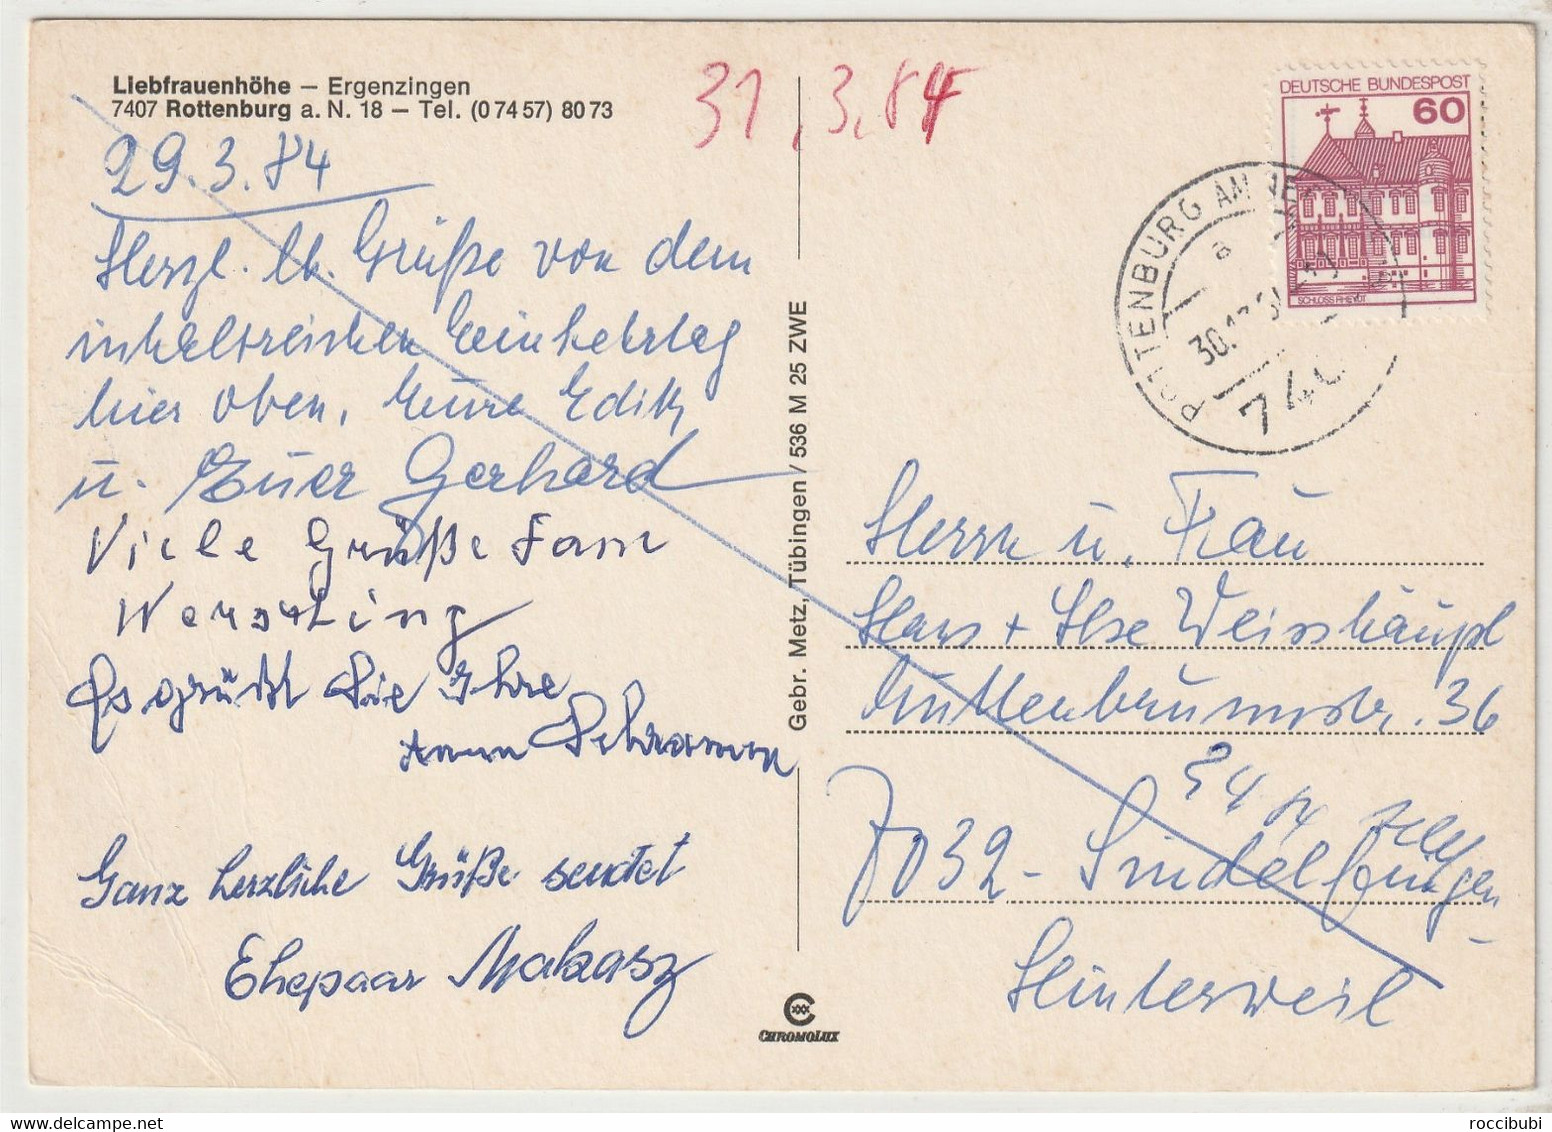 Liebfrauenhöhe – Ergenzingen
7407 Rottenburg a. N. 18 – Tel. (0 74 57) 80 73
31.3.84
DEUTSCHE BUNDESPOST
60
SCHLOSS RHEYDT
ROTTENBURG AM
a
30.
74
29.3.84
Herzl. Grüße von dem
inhaltreichen Einkehrtag
hier oben, Eure Edith
u. Euer Gerhard
Viele Grüße Fam
Es grüßt Sie Ihre
Anna Schramm
Ganz herzliche Grüße sendet
Ehepaar Makasz
Gebr. Metz, Tübingen / 536 M 25 ZWE
CHROMOLUX
Herrn u. Frau
Hans + Ilse Weisshäupl
36
7032 - Sindelfingen -
Hinterweil